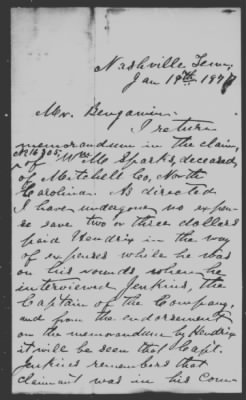 Nashville Tenn,
Jan 19th 1877
Mr. Benjamin:
I return
memorandum in the claim,
No 16305 of Wm M Sparks, deceased,
of Mitchell Co, North
Carolina. As directed
I have undergone no expen-
se save two or three dollars
paid Hendrix in the way
of expenses while he was
on his rounds, when he
interviewed Jenkins, the
Captain of the Company,
and from the endorsement
on the memorandum by Hendrix
it will be seen that Capt.
Jenkins remembers that
claimant was in his Com-